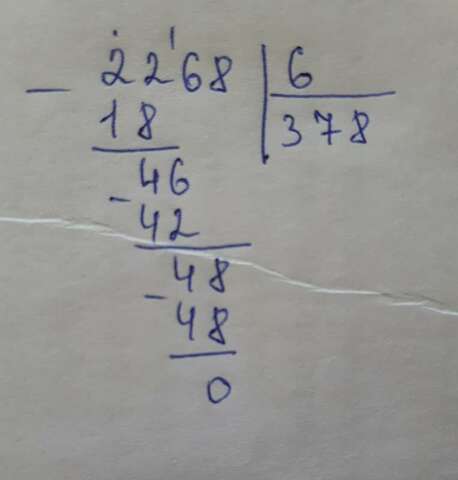 - 2268 | 6
18 | 378
46
- 42
48
- 48
0